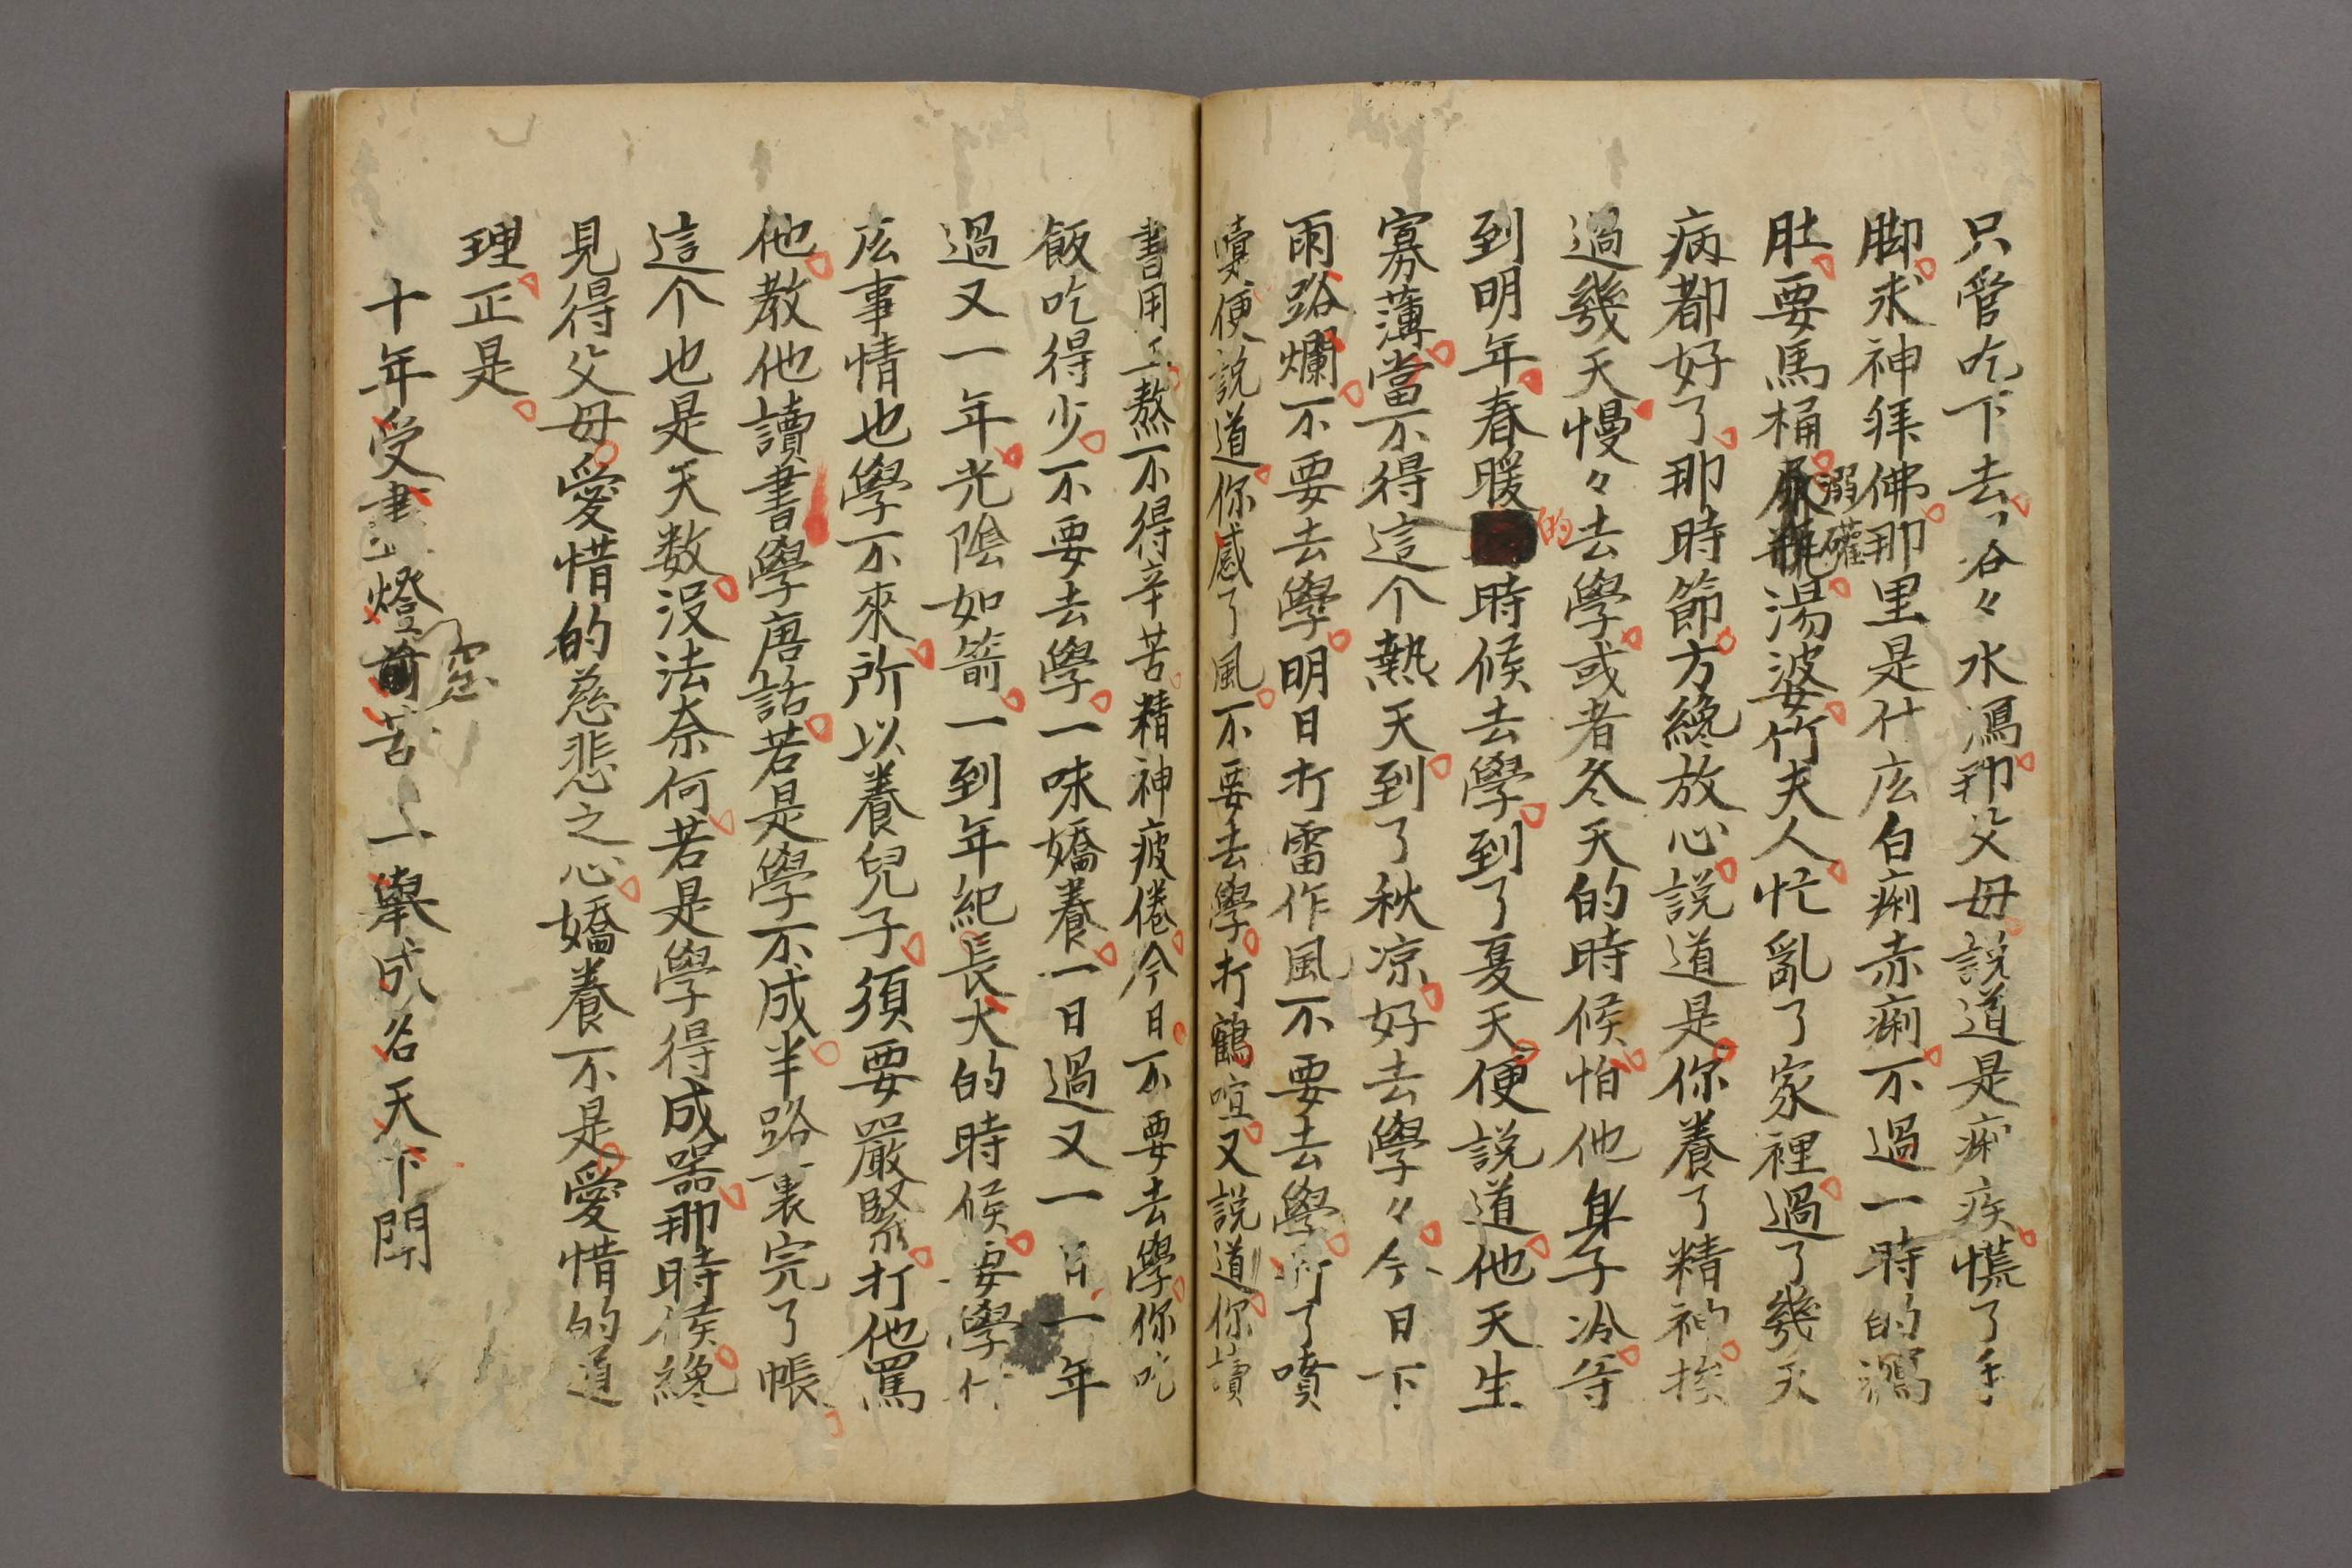 只管吃下去了冷々水瀉那父母説道是痢疾慌了手
脚求神拜佛那里是什庅白痢赤痢不過一時的瀉
肚要馬桶溺礶湯婆竹夫人忙亂了家裡過了幾天
病都好了那時節方纔放心説道是你養了精神挨
過幾天慢々去學或者冬天的時候怕他身子冷等
到明年春暖的時候去學到了夏天便説道他天生
寡薄當不得這个熱天到了秋凉好去學々今日下
雨路爛不要去學明日打雷作風不要去學打了噴
嚏便説道你感了風不要去學打鶴喧又説道你讀
書用工熬不得辛苦精神疲倦今日不要去學你吃
飯吃得少不要去學一味嬌養一日過又一日一年
過又一年光陰如箭一到年紀長大的時候要學什
庅事情也學不來所以養兒子須要嚴緊打他罵
他教他讀書學唐話若是學不成半路裏完了帳
這个也是天数没法奈何若是學得成器那時候纔
見得父母愛惜的慈悲之心嬌養不是愛惜的道
理正是
十年受盡燈窓苦一舉成名天下聞